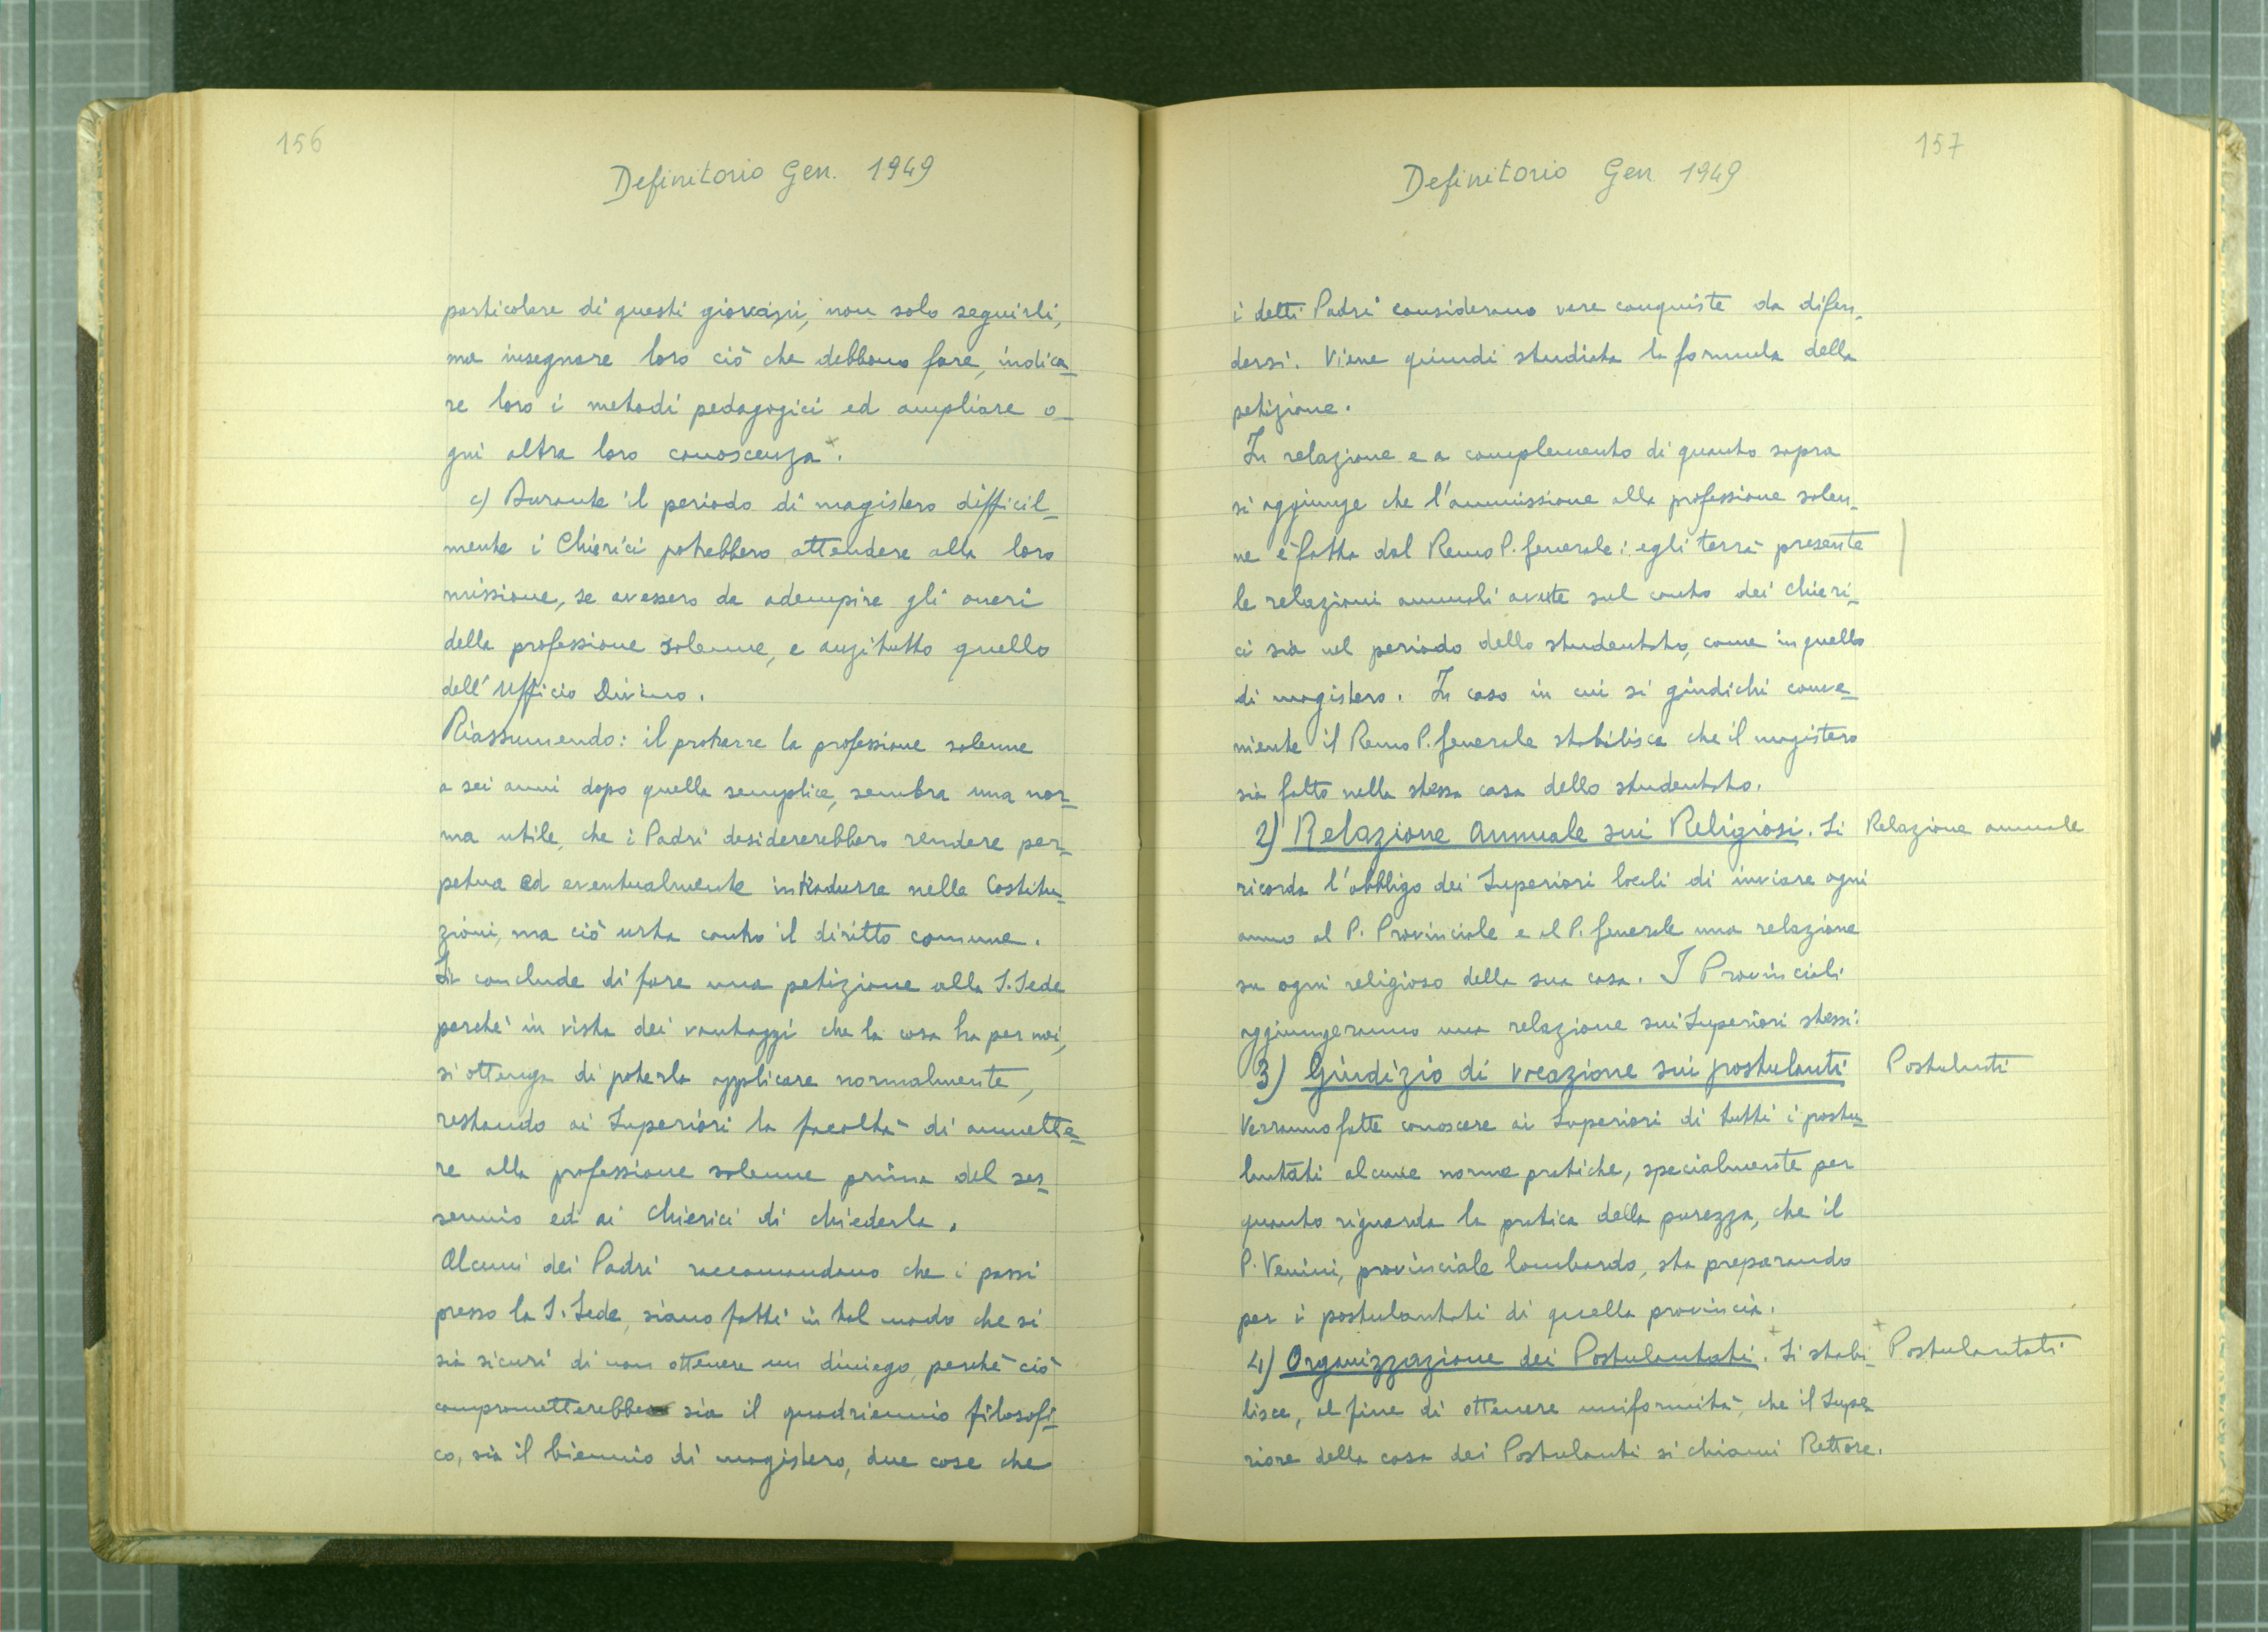 156
Definitorio Gen. 1949
particolare di questi giovani, non solo seguirli,
ma insegnare loro ciò che debbono fare, indica-
re loro i metodi pedagogici ed ampliare o-
gni altra loro conoscenza.
c) Durante il periodo di magistero difficil-
mente i Chierici potrebbero attendere alla loro
missione, se avessero da adempire gli oneri
della professione solenne, e anzitutto quello
dell'Ufficio Divino.
Riassumendo: il protrarre la professione solenne
a sei anni dopo quella semplice, sembra una nor-
ma utile, che i Padri desidererebbero rendere per-
petua ed eventualmente introdurre nelle Costitu-
zioni, ma ciò urta contro il diritto comune.
Si conclude di fare una petizione alla S. Sede
perchè in vista dei vantaggi che la cosa ha per noi,
si ottenga di poterla applicare normalmente,
restando ai Superiori la facoltà di ammette-
re alla professione solenne prima del ses-
sennio ed ai Chierici di chiederla.
Alcuni dei Padri raccomandano che i passi
presso la S. Sede, siano fatti in tal modo che si
sia sicuri di non ottenere un diniego, perchè ciò
comprometterebbe sia il quadriennio filosofi-
co, sia il biennio di magistero, due cose che
157
Definitorio Gen 1949
i detti Padri considerano vere conquiste da difen-
dersi. Viene quindi studiata la formula della
petizione.
In relazione e a complemento di quanto sopra
si aggiunge che l'ammissione alla professione solen-
ne è fatta dal Rev.mo P. Generale: egli terrà presente
le relazioni annuali avute sul conto dei Chieri-
ci sia nel periodo dello studentato, come in quello
di magistero. In caso in cui si giudichi conve-
niente il Rev.mo P. Generale stabilisce che il magistero
sia fatto nella stessa casa dello studentato.
2) Relazione annuale sui Religiosi. Si
Relazione annuale
ricorda l'obbligo dei Superiori locali di inviare ogni
anno al P. Provinciale e al P. Generale una relazione
su ogni religioso della sua casa. I Provinciali
aggiungeranno una relazione sui Superiori stessi.
3) Giudizio di vocazione sui postulanti
Postulanti
Verranno fatte conoscere ai Superiori di tutti i postu-
lantati alcune norme pratiche, specialmente per
quanto riguarda la pratica della purezza, che il
P. Venini, provinciale lombardo, sta preparando
per i postulantati di quella provincia.
4) Organizzazione dei Postulantati. Si stabi-
Postulantati
lisce, al fine di ottenere uniformità, che il Supe
riore della casa dei Postulanti si chiami Rettore.